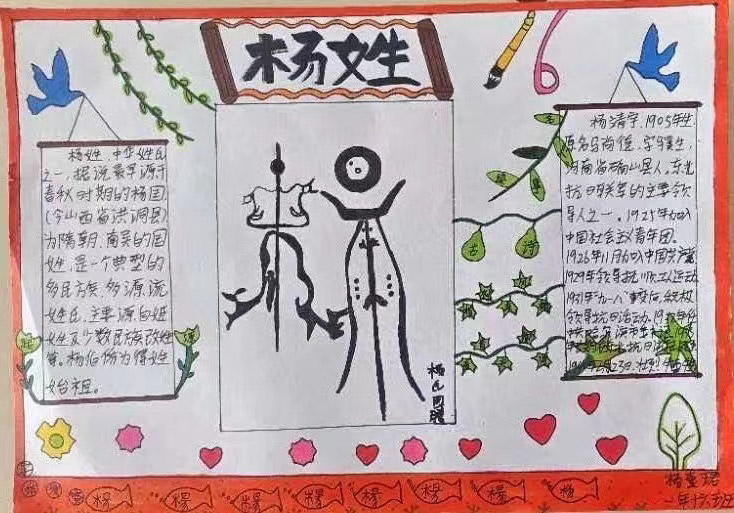 杨姓
杨姓,中华姓氏
之一,据说最早源于
春秋时期的杨国
(今山西省洪洞县)
为隋朝、南吴的国
姓,是一个典型的
多民族、多源流
姓氏,主要源自姬
姓及少数民族改姓
等。杨伯侨为得姓
始祖。
杨氏图腾
杨靖宇,1905年生,
原名马尚德,字骥生,
河南省确山县人,东北
抗日联军的主要领
导人之一。1925年加入
中国社会主义青年团。
1926年11月加入中国共产党
1929年领导抚顺工人运动
1931年九一八事变后,积极
领导抗日活动。
古 诗
杨 杨 杨 杨 杨 杨 杨 杨
一年十六班